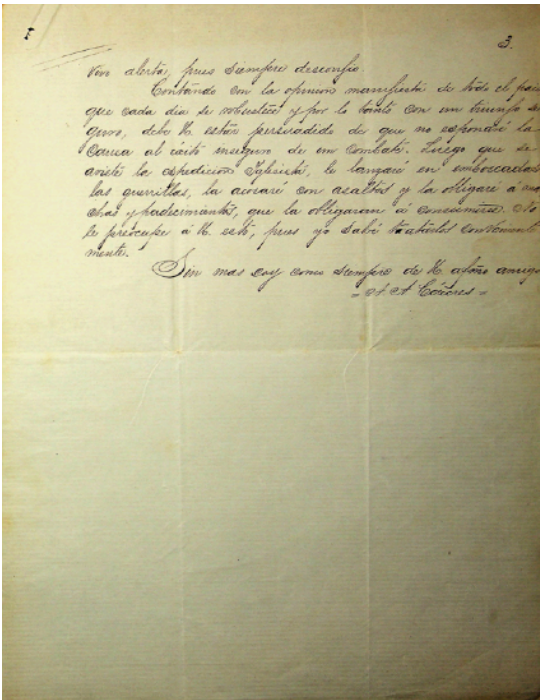 3.
vivo alerta, pues siempre desconfio.
Contando con la opinion manifiesta de todo el pais
que cada dia se robustece y por lo tanto con un triunfo se
guro, debe U. estar persuadido de que no espondré la
causa al éxito inseguro de un combate. Luego que se
aviste la espedicion Iglesista, le lanzaré en emboscadas
las guerrillas, la acosaré con asaltos y la obligaré á mar
chas y padecimientos, que la obligaran á consumirse. No
le preocupe á U. esto, pues yo sabré tratarlos conveniente
mente.
Sin mas soy como siempre de U. afmo amigo
= A. A. Cáceres =